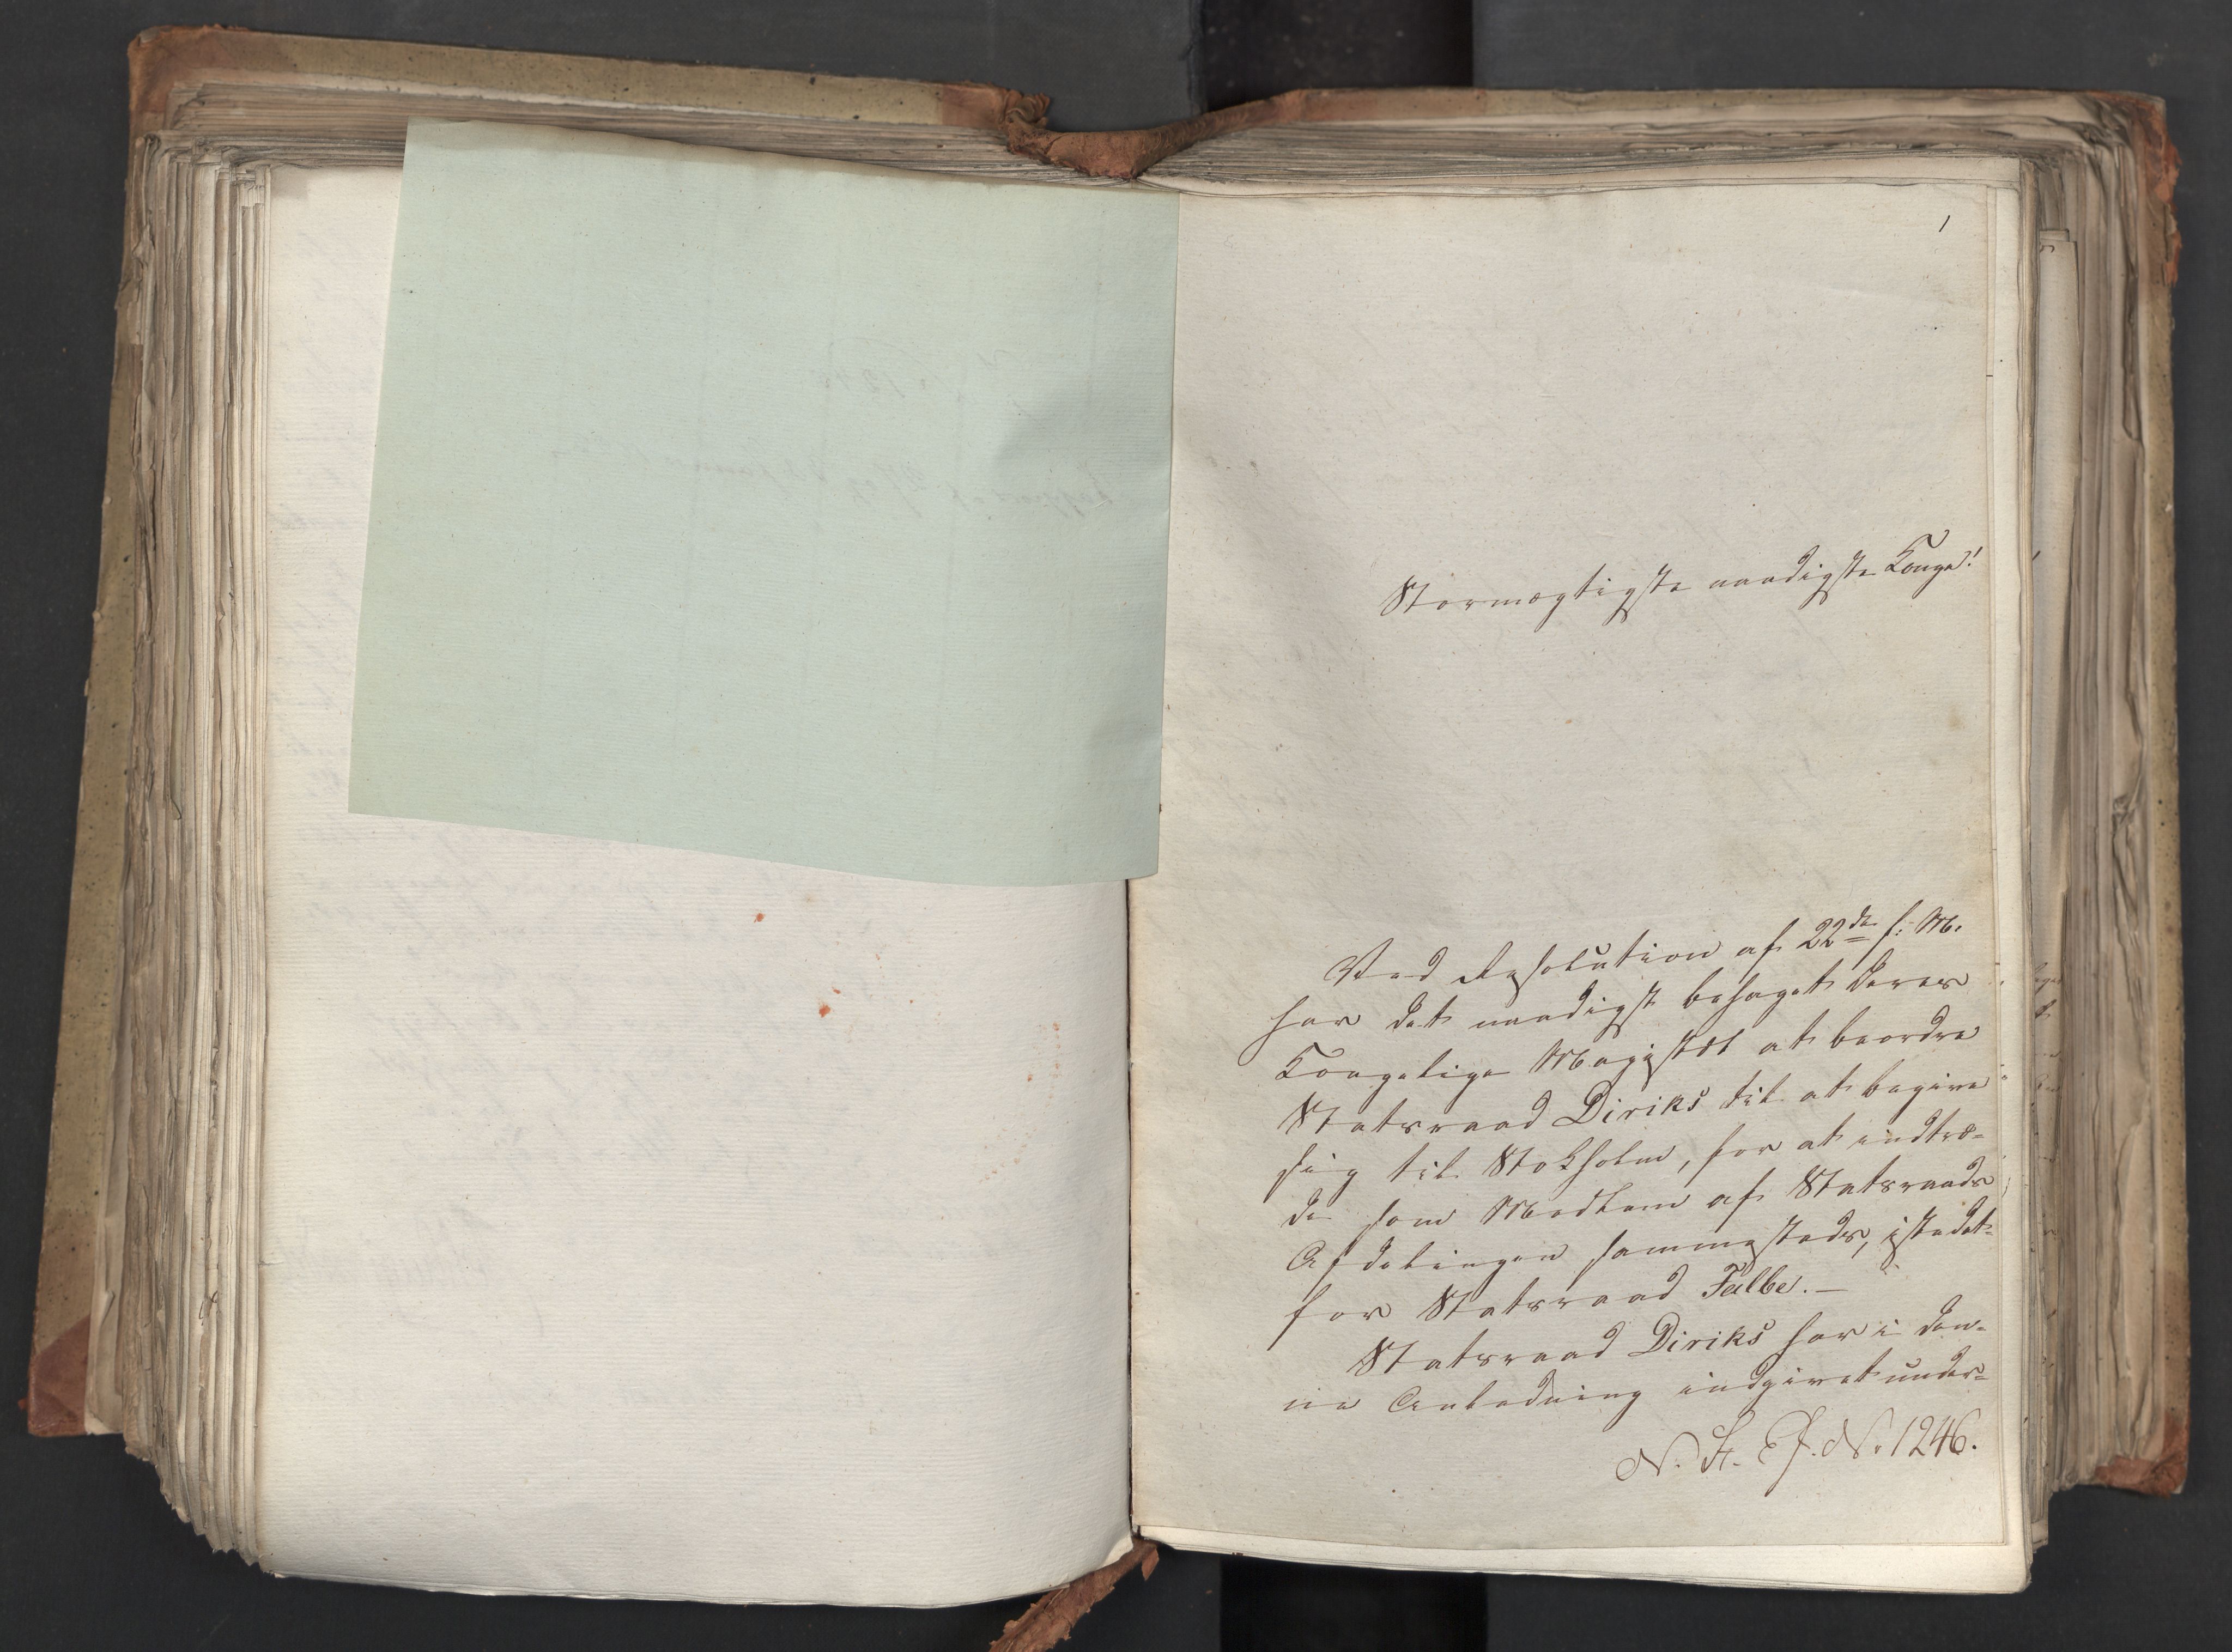 1
Stormægtigste naadigste Konge!
Ved Resolution af 22de f: M.
har det naadigst behaget Deres
Kongelige Majestæt at beordre
Statsraad Diriks til at begive
sig til Stokholm, for at indtræ-
de som Medlem af Statsraads
Afdelingen sammesteds, istedet-
for Statsraad Falbe. —
Statsraad Diriks har i den-
ne Anledning indgivet under-
N. St. Ex. N. 1246.